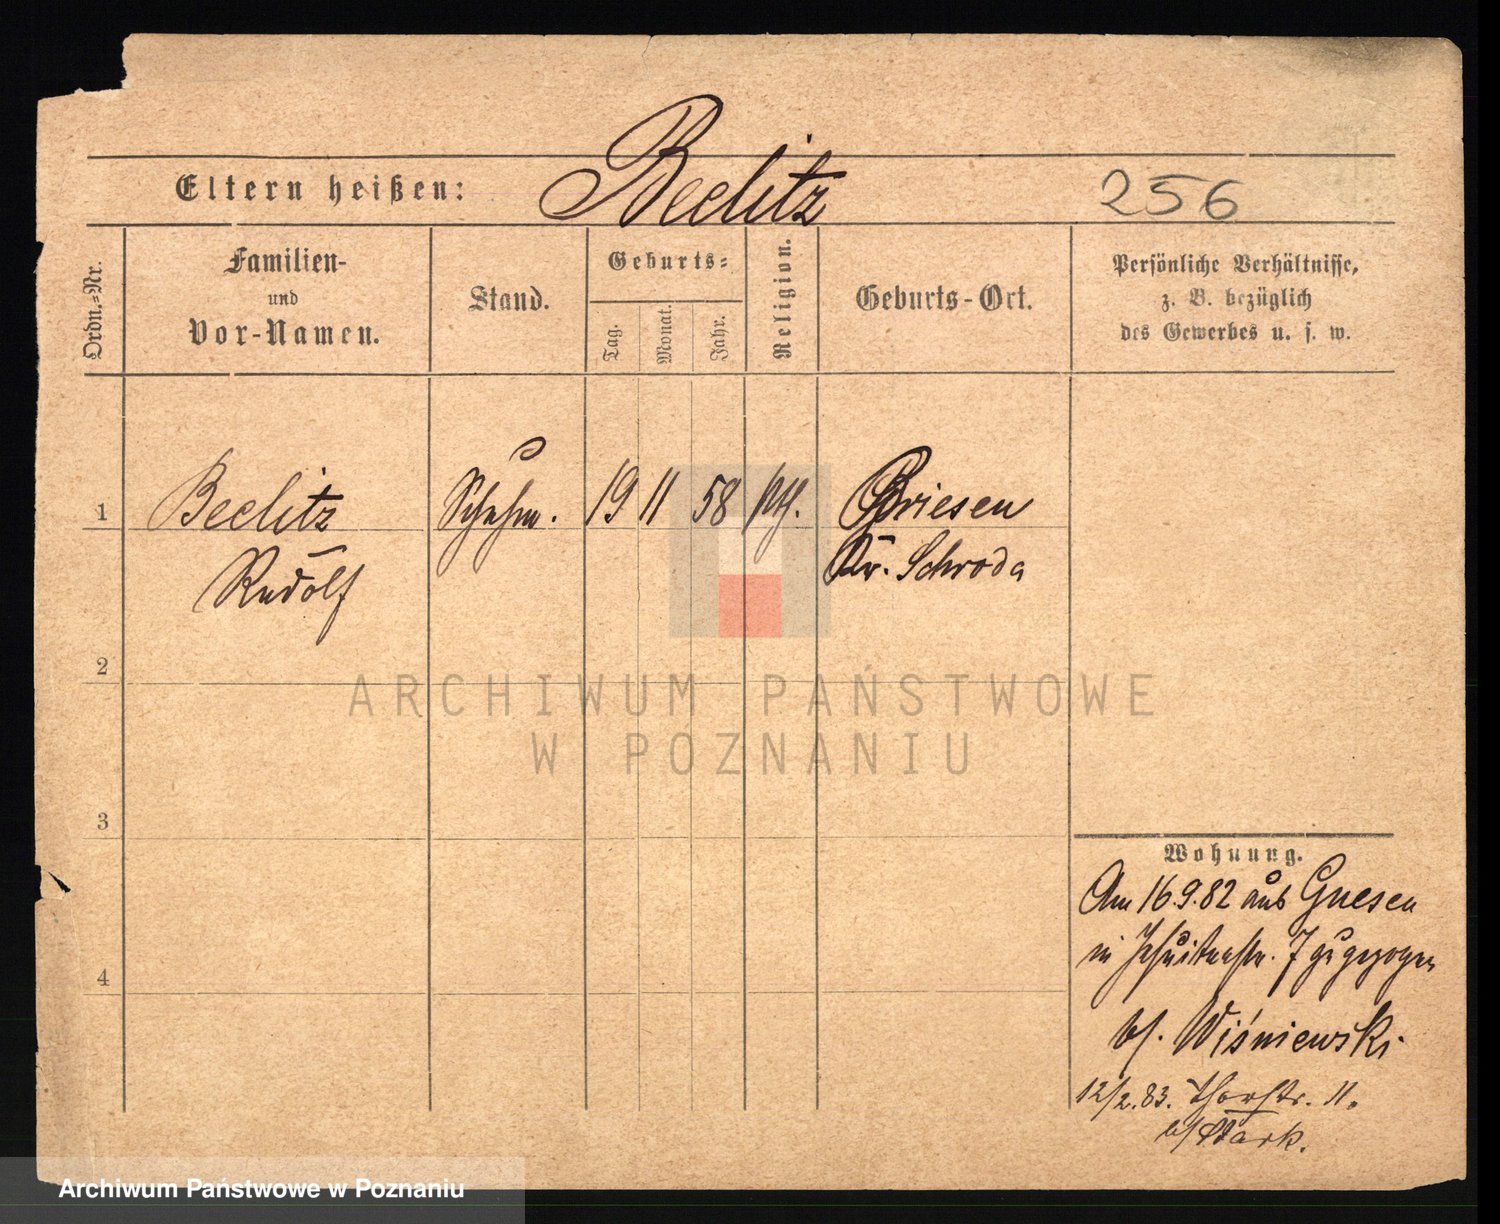 Beelitz
Eltern heißen:
256
Ordn.=Nr.
Familien-
und
Vor-Namen.
Stand.
Geburts=
Tag.
Monat.
Jahr.
Religion.
Geburts-Ort.
Persönliche Verhältnisse,
z. B. bezüglich
des Gewerbes u. s. w.
1
Beelitz
Schuhm.
19
11
58
Briesen
Rudolf
Kr. Schroda
2
ARCHIWUM PAŃSTWOWE
W POZNANIU
3
Wohnung.
Am 16.9.82 aus Gnesen
in Jesuitenstr. 7 zugezogen
4
bei Wiśniewski
12/2.83. Thorstr. 11.
bei Stark.
Archiwum Państwowe w Poznaniu